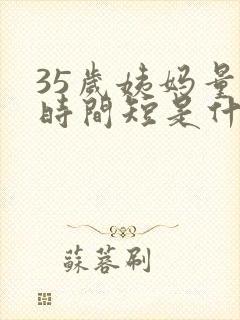 35歲姨妈量
時間短是什
蘇蓉刷